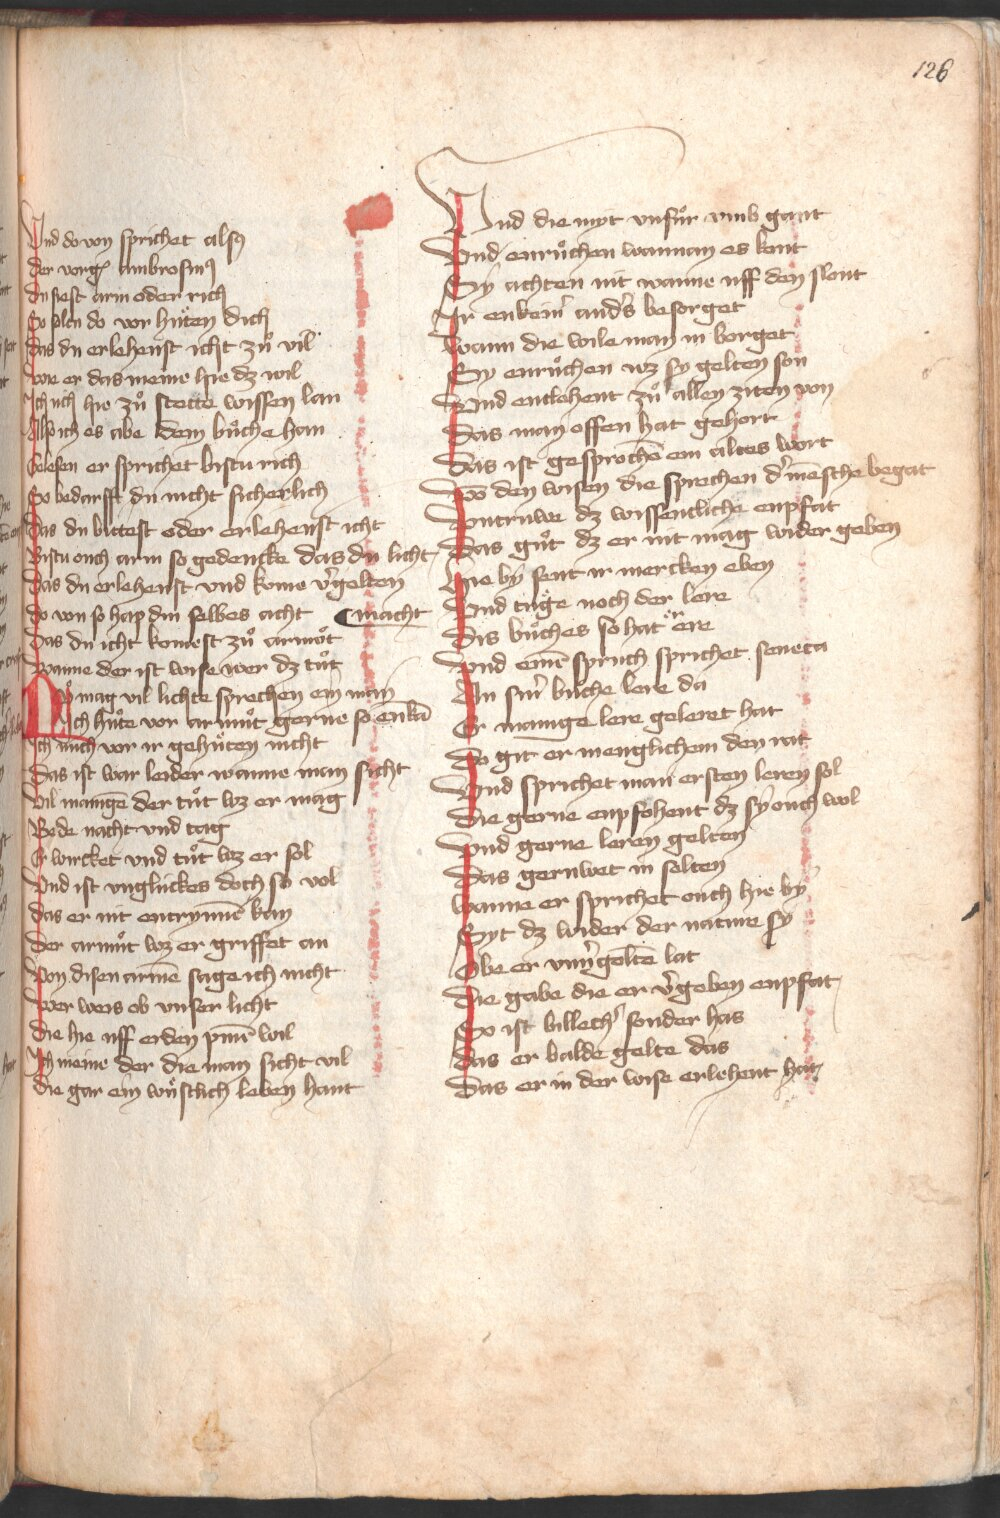 126
Vnd do von sprichet alsus
der vorgen ambrosius
du siest arm oder rich
So solen do vor hüten dich
das du erlehenst icht zů vil
wie er das meine hie dz wil
Ich uch hie zů stette wissen lan
Also ich es abe dem bůche han
Gelesen er sprichet bistu rich
So bedarfft du nicht sicherlich
Das du bittest oder erlehenst icht
Bistu ouch arm so gedencke das du licht
Das du erlehenst vnd kome v̕gelten
do von so hap din selbes acht macht
Das du icht komest zů armůt
wanne der ist wise wer dz tůt
Nv mag vil lichte sprechen ein man
Ich hůte vor armůt gerne so enkan
Ich mich vor ir gehůten nicht
Das ist war leider wanne man sicht
Vil mange der tůt wz er mag
Bede nacht vnd tag
Er wircket vnd tůt wz er sol
Vnd ist vnglückes doch so vol
das er nit entrynne kan
Der armůt wz er griffet an
Von disen arme sage ich nicht
Wer weis ob vnser licht
die hie uff erden pine wil
Ich meine der die man sicht vil
die gar ein wůstlich leben hant
Vnd die myt vnfůr vmb gant
Vnd enrůchen wannan es kont
Sy achten nit wanne uff den slont
Ir enkein̕ and̕s besorget
Wann die wile man in borget
Sy enrůchen wz sy gelten son
Vnd entlehent zů allen ziten von
Das man offen hat gehort
Das ist gesproche ein altes wort
Vo den wisen die sprechen d̕ mesche begat
Vntruwe dz wissentliche enpfat
Das gůt dz er nit mag wider geben
Hie by sent ir mercken eben
Vnd tuge noch der lere
Dis bůches so hat er ere
Vnd eine spruch sprichet seneca
An sin̕ buche lere da
Er mannige lere geleret hat
Do git er menglichem den rat
Vnd sprichet man ersten leren sol
Die gerne enpfohent dz sy ouch wol
Vnd gerne leren gelten
Das geruwet in selten
wanne er sprichet ouch hie by
Syt dz wider der nature sy
Obe er vnu̕golte lat
Die gabe die er v̕geben enpfat
So ist billech̕ sonder has
Das er balde gelte das
Das er in der wise erlehent hat